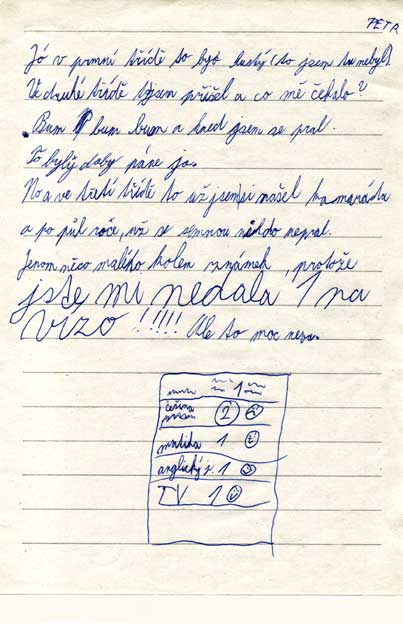 PETR
Jó v první třídě to byo huský (to jsem tu nebyl)
Ve druhé třídě jsem přišel a co mě čekalo?
Bum bum bum a hned jsem se pral.
To bylý doby páne jo.
No a ve třetí třídě to už jsem si našel kamaráda
a po půl roce, už se semnou nikdo nepral.
Jenom něco malího kolem známek, protože
jste mi nedala 1 na
vízo !!!!! Ale to moc neva.
1
čeština 2
matika 1
anglický j. 1
TV 1